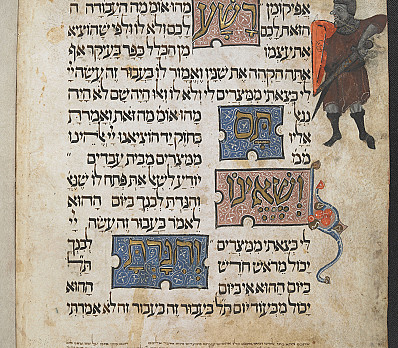 אפיקומן רשע מהו אומ מה העבודה ה
הזאת לכם לכם ולא לו ולפי שהוציא
את עצמו מן הכלל כפר בעיקר אף
אתה הקהה את שניו ואמור לו בעבור זה עשה יי
לי בצאתי ממצרים לי ולא לו ואילו היה שם לא היה
תם מהו אומ מה זאת ואמרת
אליו בחזק יד הוציאנו יי
ממצרים מבית עבדים
ושאינו יודע לשאל את פתח לו שנ
והגדת לבנך ביום ההוא
לאמר בעבור זה עשה יי
לי בצאתי ממצרים והגדת לבנך
יכול מראש חדש ת
ביום ההוא אי ביום ההוא
יכול מבעוד יום תל בעבור זה בעבור זה לא אמרתי